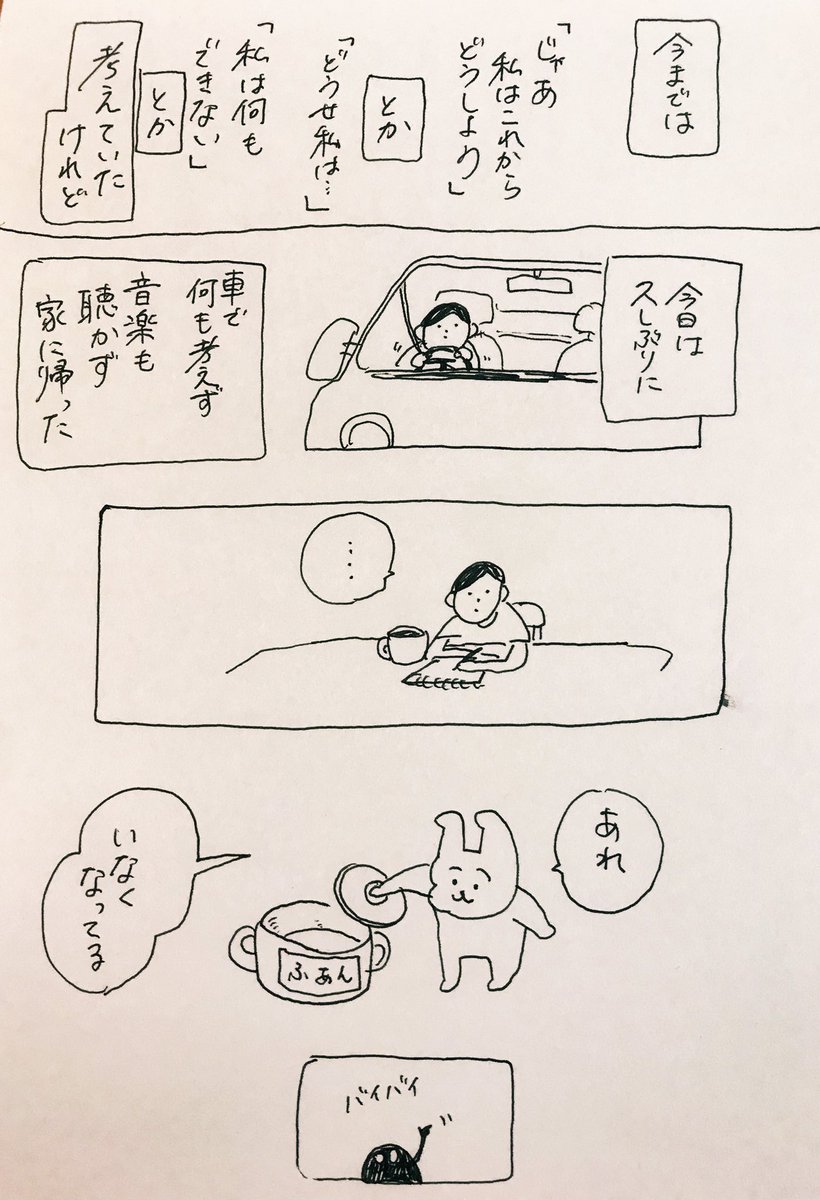 今までは
「じゃあ
私はこれから
どうしよう」
とか
「どうせ私は…」
「私は何も
できない」
とか
考えていた
けれど
今日は
久しぶりに
車で
何も考えず
音楽も
聴かず
家に帰った
…
あれ
いなく
なってる
ふあん
バイバイ